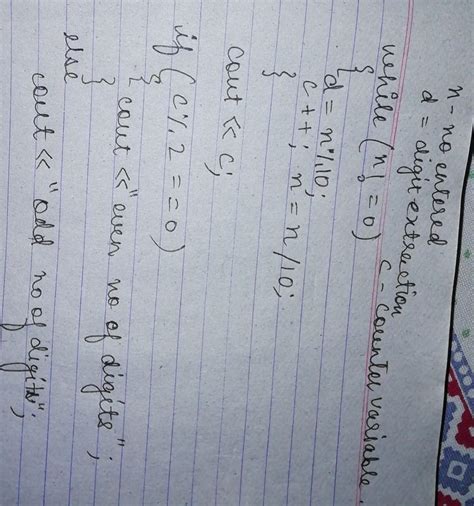 n - no entered
d = digit extraction
c - counter variable.
while (n != 0)
{
d = n % 10;
c++; n = n/10;
}
cout << c;
if (c % 2 == 0)
{
cout << "even no of digits";
}
else
cout << "odd no of digits";